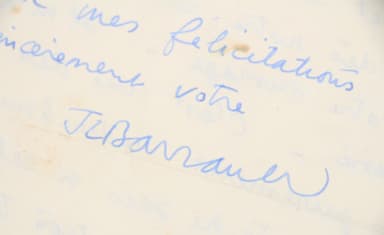 mes félicitations
sincèrement votre
JLBarrault